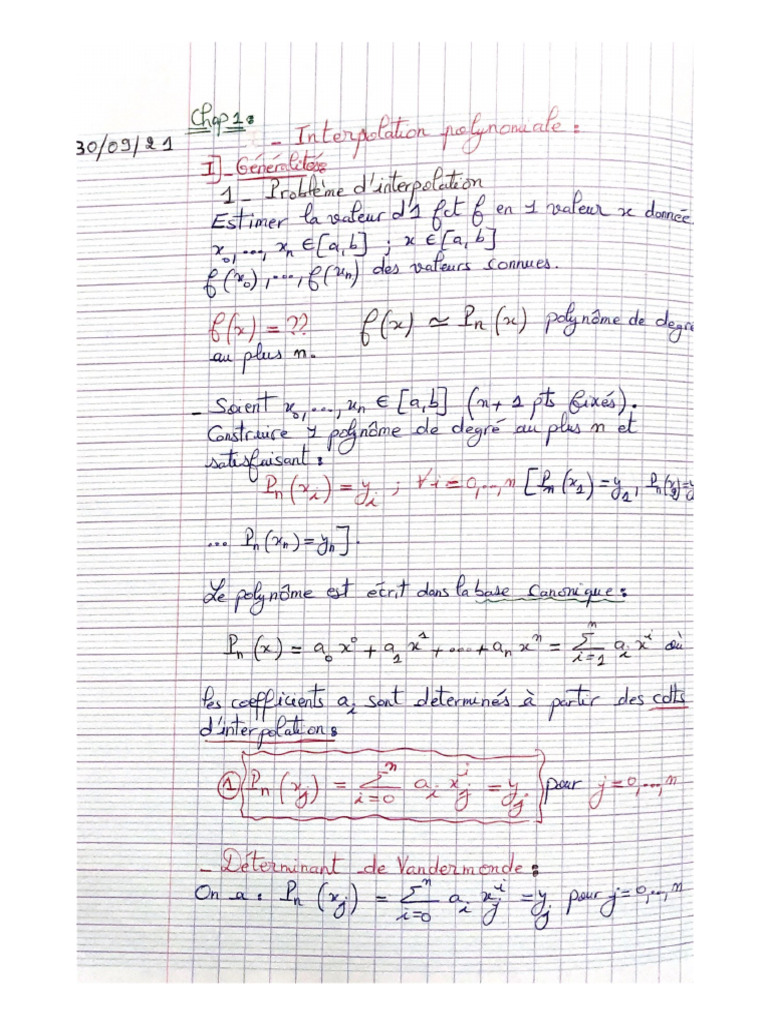 Chap 1 :
30/09/21
- Interpolation polynomiale :
I]- Généralités
1 - Problème d'interpolation
Estimer la valeur d'1 fct f en 1 valeur x donnée
x₀,..., xₙ ∈ [a,b] ; x ∈ [a,b]
f(x₀),...,f(xₙ) des valeurs connues.
f(x) = ?? f(x) ≃ Pₙ(x) polynôme de degré
au plus n.
- Soient x₀,..., xₙ ∈ [a,b] (n+1 pts fixés).
Construire 1 polynôme de degré au plus n et
satisfaisant :
Pₙ(xᵢ) = yᵢ ; ∀ i = 0,..,n [Pₙ(x₁) = y₁, Pₙ(x₂) = y
... Pₙ(xₙ) = yₙ].
Le polynôme est écrit dans la base canonique :
Pₙ(x) = a₀x⁰ + a₁x¹ + ... + aₙxⁿ = Σⁿᵢ₌₁ aᵢxⁱ où
les coefficients aᵢ sont déterminés à partir des cdts
d'interpolation :
① Pₙ(xⱼ) = Σⁿᵢ₌₀ aᵢ xⱼⁱ = yⱼ pour j = 0,...,n
- Déterminant de Vandermonde :
On a : Pₙ(xⱼ) = Σⁿᵢ₌₀ aᵢ xⱼⁱ = yⱼ pour j = 0,...,n